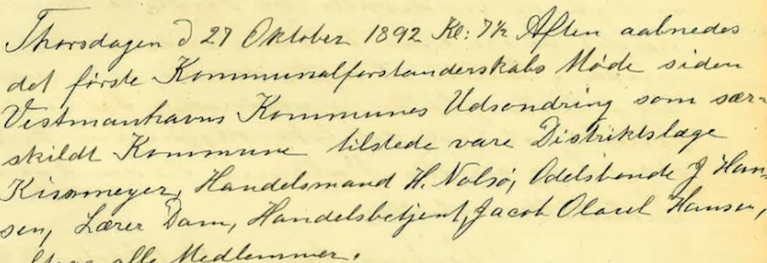 Thorsdagen d 27 Oktober 1892 Kl: 7½ Aften aabnedes
det første Kommunalforstanderskabs Møde siden
Vestmanhavns Kommunes Udsondring som sær-
skildt Kommune tilstede vare Distriktslæge
Kissmeyer, Handelsmand H. Nolsø, Odelsbonde J Han-
sen, Lærer Dam, Handelsbetjent, Jacob Olavel Hansen,
alle Medlemmer.